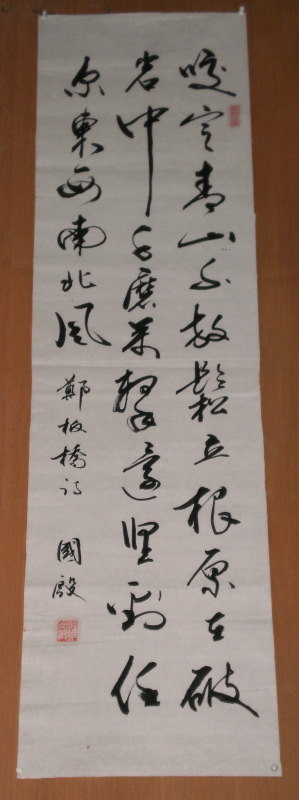 咬定青山不放鬆立根原在破
岩中千磨萬擊還堅勁任
尔東西南北風 鄭板橋詩 國殷